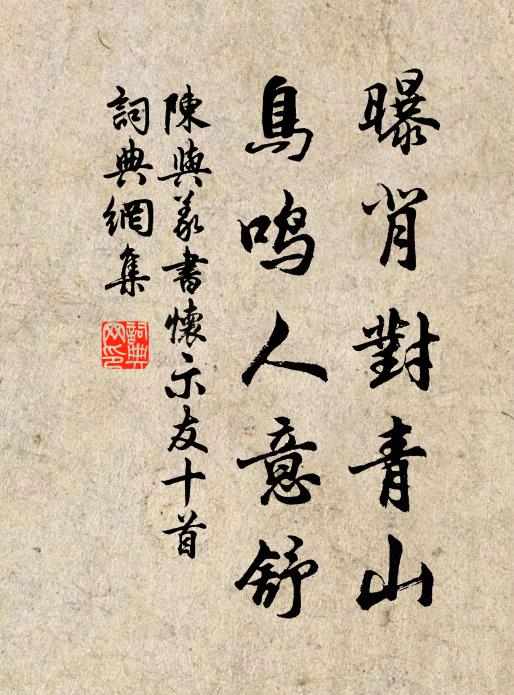 曝背對青山
鳥鳴人意舒
陳與義書懷示友十首
詞典網集
詞典網印